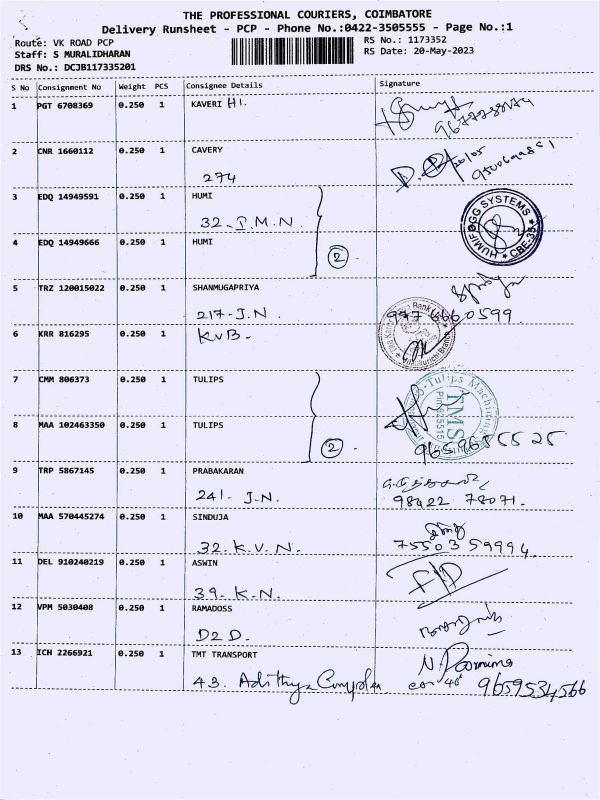 THE PROFESSIONAL COURIERS, COIMBATORE
Delivery Runsheet - PCP - Phone No.:0422-3505555 - Page No.:1
Route: VK ROAD PCP RS No.: 1173352
Staff: S MURALIDHARAN RS Date: 20-May-2023
DRS No.: DCJB117335201
S No Consignment No Weight PCS Consignee Details Signature
1 PGT 6708369 0.250 1 KAVERI HI.
2 CNR 1660112 0.250 1 CAVERY
274
3 EDQ 14949591 0.250 1 HUMI
32-I.M.N.
HUMIFOGG SYSTEMS * CBE-35 *
4 EDQ 14949666 0.250 1 HUMI
2
5 TRZ 120015022 0.250 1 SHANMUGAPRIYA
217-J.N.
6 KRR 816295 0.250 1 KVB-
7 CMM 806373 0.250 1 TULIPS
Tulips Machining
TMS
8 MAA 102463350 0.250 1 TULIPS
2 9659685525
9 TRP 5867145 0.250 1 PRABAKARAN
241. J.N. 98422 78071.
10 MAA 570445274 0.250 1 SINDUJA
32. K.V.N. 75503 59994.
11 DEL 910240219 0.250 1 ASWIN
39. K.N.
12 VPM 5030408 0.250 1 RAMADOSS
D2D.
13 ICH 2266921 0.250 1 TMT TRANSPORT
43. Adithya Complex 9659534566